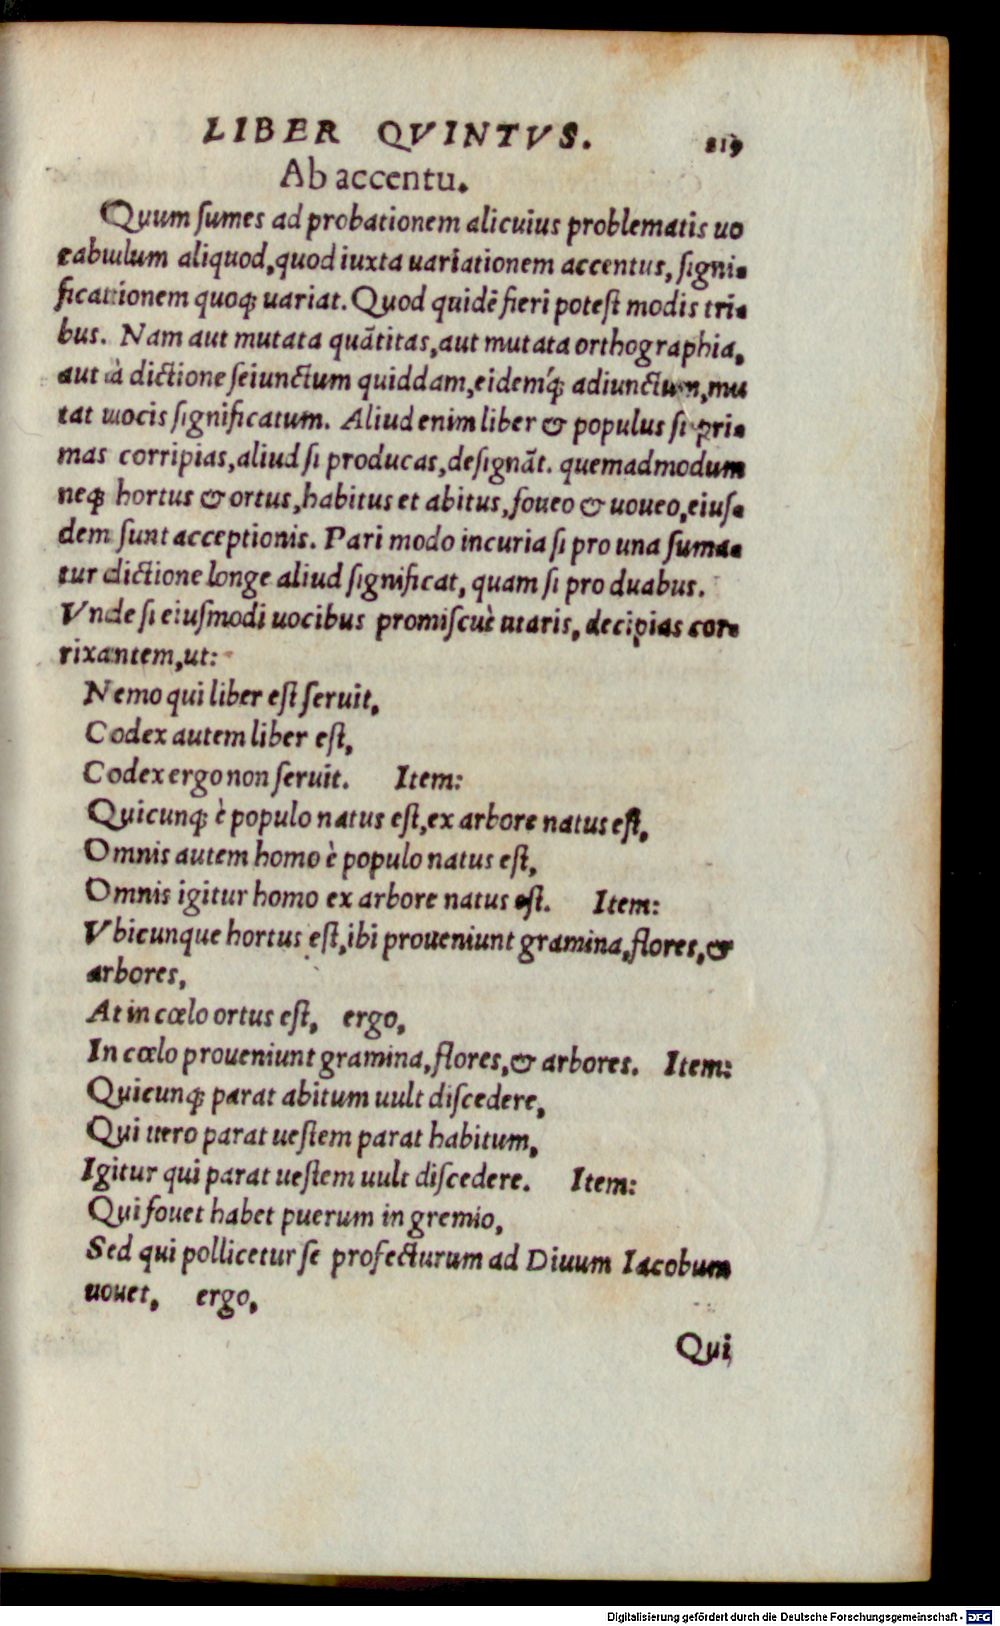 LIBER QVINTVS. 219
Ab accentu.
Quum ſumes ad probationem alicuius problematis uo
cabulum aliquod, quod iuxta uariationem accentus, ſigni-
ficationem quoq; uariat. Quod quidē fieri poteſt modis tri-
bus. Nam aut mutata quātitas, aut mutata orthographia,
aut à dictione ſeiunctum quiddam, eidemq́; adiunctum, mu
tat uocis ſignificatum. Aliud enim liber & populus ſi pri-
mas corripias, aliud ſi producas, deſignāt. quemadmodum
neq; hortus & ortus, habitus et abitus, foueo & uoueo, eiuſ-
dem ſunt acceptionis. Pari modo incuria ſi pro una ſuma-
tur dictione longe aliud ſignificat, quam ſi pro duabus.
Vnde ſi eiuſmodi uocibus promiſcuè utaris, decipias cor-
rixantem, ut:
Nemo qui liber eſt ſeruit,
Codex autem liber eſt,
Codex ergo non ſeruit. Item:
Quicunq; è populo natus eſt, ex arbore natus eſt,
Omnis autem homo è populo natus eſt,
Omnis igitur homo ex arbore natus eſt. Item:
Vbicunque hortus eſt, ibi proueniunt gramina, flores, &
arbores,
At in cœlo ortus eſt, ergo,
In cœlo proueniunt gramina, flores, & arbores. Item:
Quicunq; parat abitum uult diſcedere,
Qui uero parat ueſtem parat habitum,
Igitur qui parat ueſtem uult diſcedere. Item:
Qui fouet habet puerum in gremio,
Sed qui pollicetur ſe profecturum ad Diuum Iacobum
uouet, ergo,
Qui
Digitalisierung gefördert durch die Deutsche Forschungsgemeinschaft - DFG